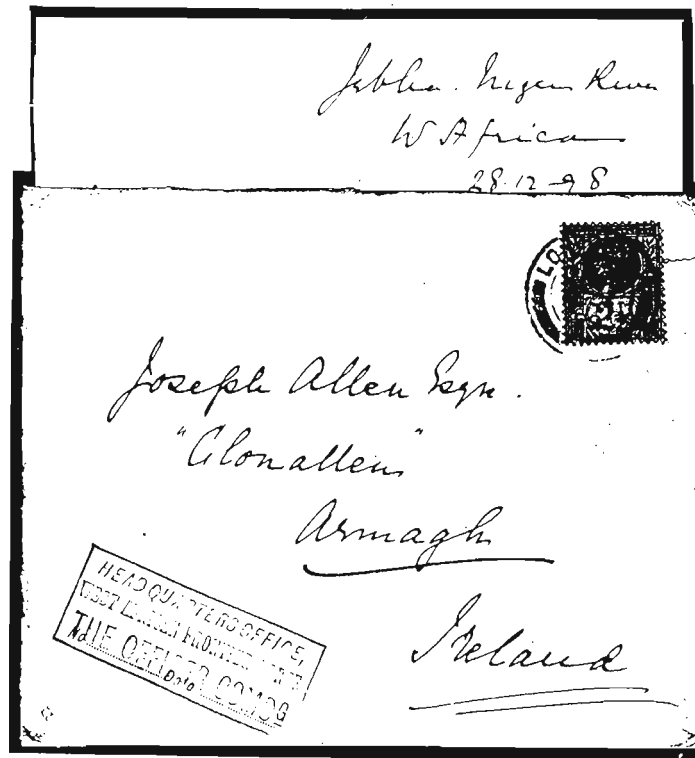 Jebba. Niger River
W Africa
28.12.98
LO
Joseph Allen Esqre.
"Clonallen"
Armagh
Ireland
HEAD QUARTERS OFFICE,
WEST AFRICAN FRONTIER FORCE
THE OFFICER COMDG
No. Date